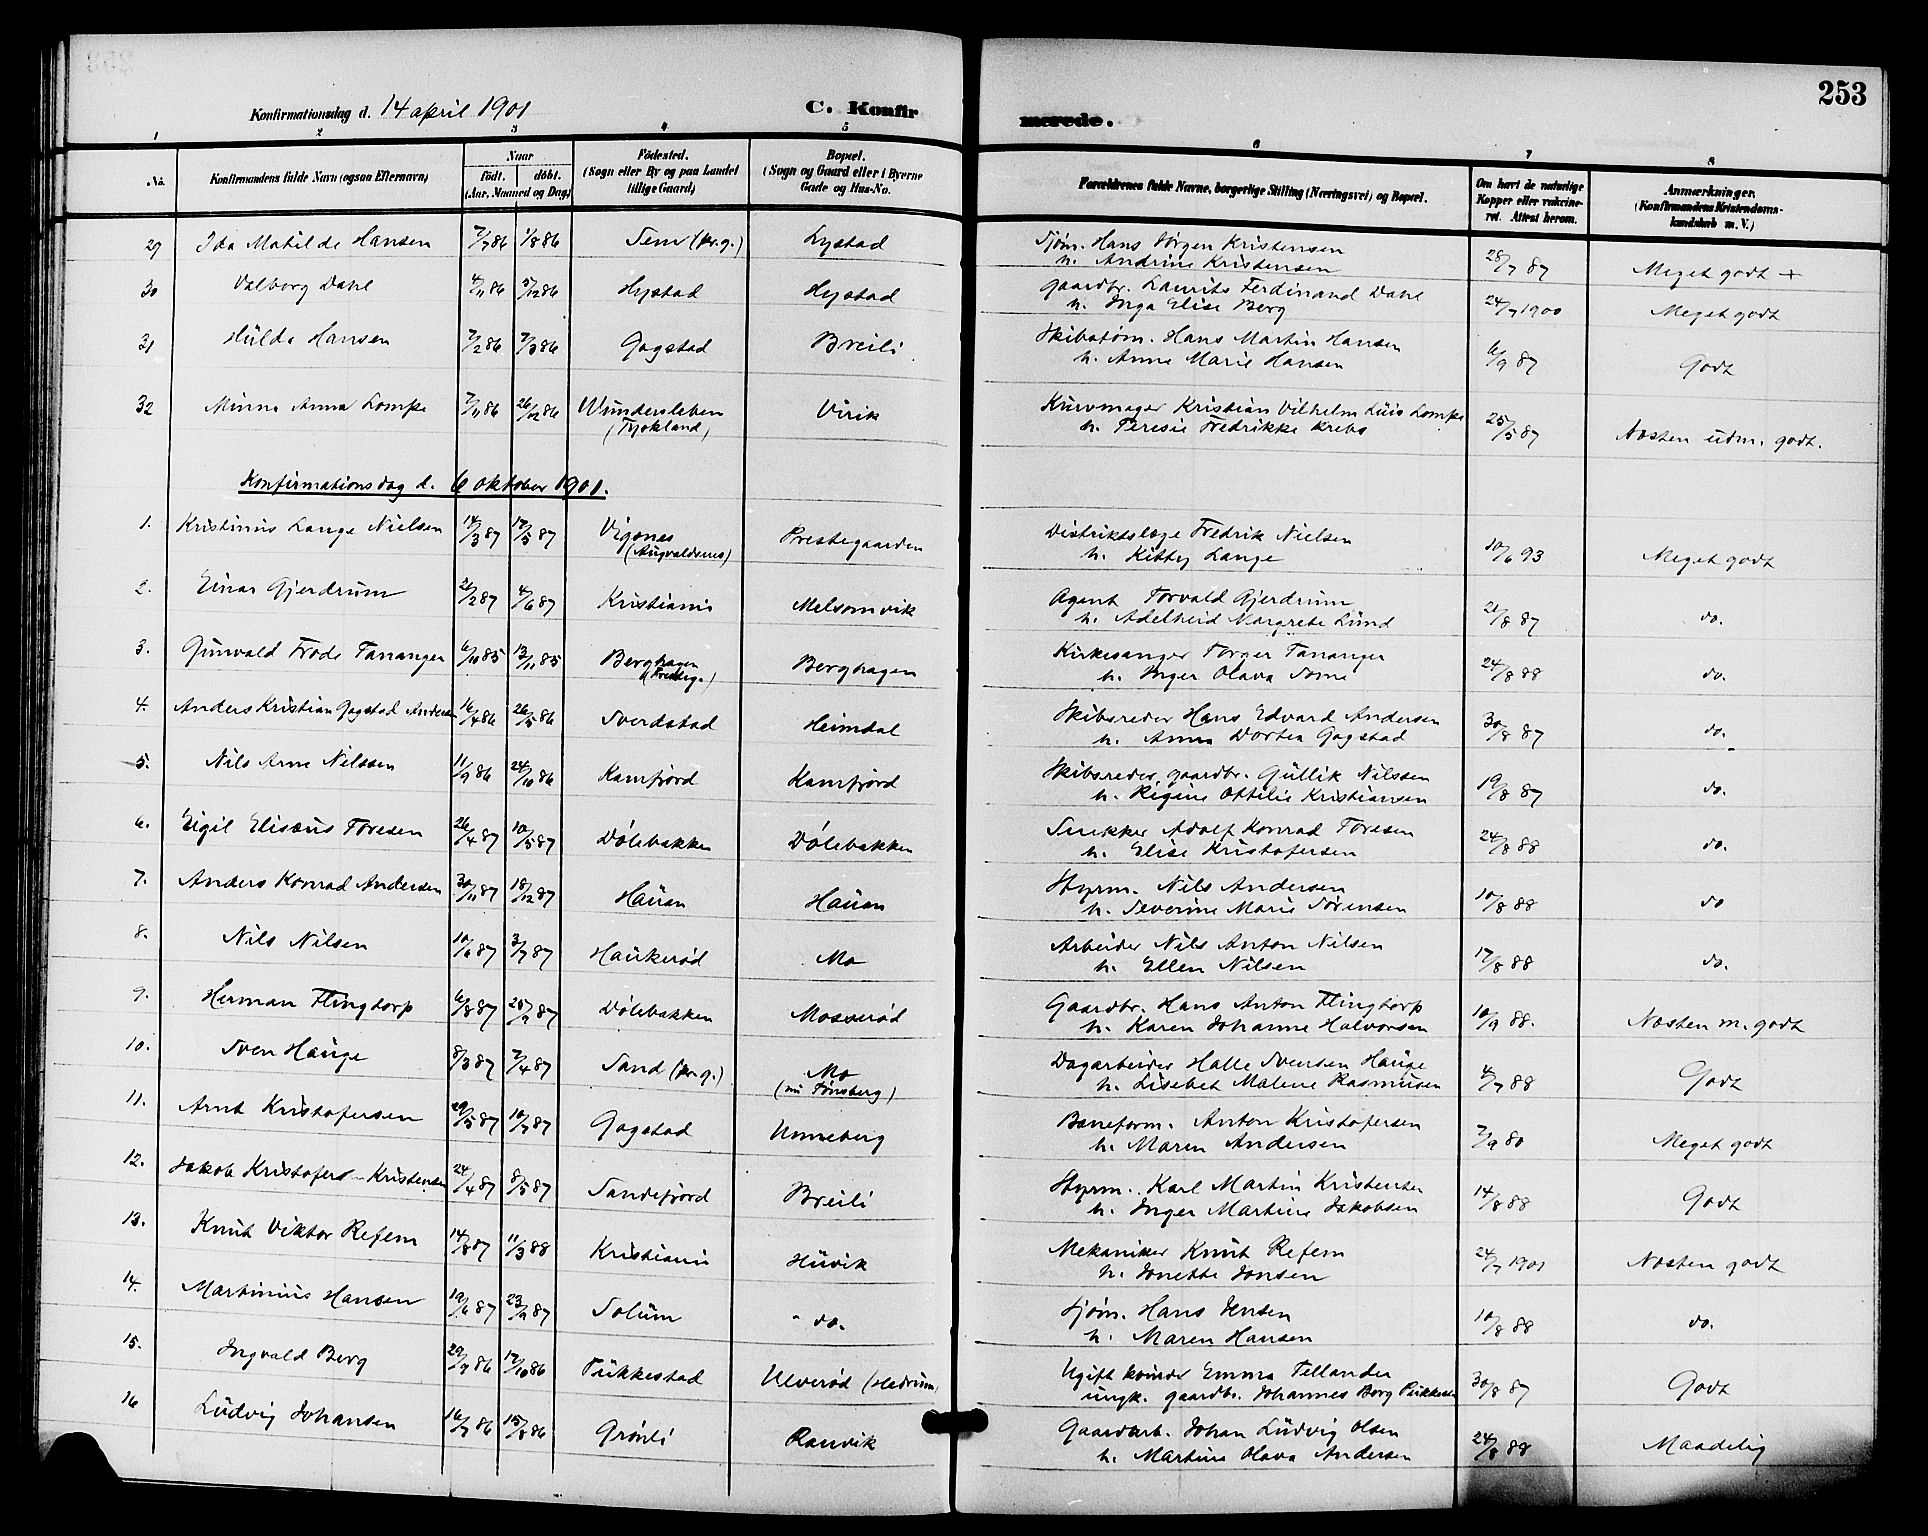 253
Konfirmationsdag d. 14 april 1901
C. Konfirmerede.
1 2 3 4 5 6 7 8
No.
Konfirmandens fulde Navn (ogsaa Efternavn)
Naar
født. døbt.
(Aar, Maaned og Dag)
Fødested.
(Sogn eller By og paa Landet
tillige Gaard)
Bopæl.
(Sogn og Gaard eller i Byerne
Gade og Hus-No.
Forældrenes fulde Navne, borgerlige Stilling (Næringsvei) og Bopæl.
Om havt de naturlige
Kopper eller vakcine-
ret. Attest herom.
Anmærkninger.
(Konfirmandens Kristendoms-
kundskab m. V.)
29 Ida Matilde Hansen 7/7 86 1/8 86 Sem (pr.g.) Lystad Sjøm. Hans Jørgen Kristensen 28/7 87 Meget godt +
h. Andrine Kristensen
30 Valborg Dahl 4/11 86 5/12 86 Hystad Hystad gaardbr. Laurits Ferdinand Dahl 24/7 1900 Meget godt
h. Inga Elise Berg
31 Hulda Hansen 7/2 86 7/3 86 Gogstad Breili Skibstøm. Hans Martin Hansen 6/9 87 Godt
h. Anne Marie Hansen
32 Minna Anna Lompe 7/11 86 26/12 86 Wundersleben Virik Kurvmager Kristian Vilhelm Luis Lompe 25/5 87 Nosten udm. godt.
(Tyskland) h. Teresie Fredrikke Krebs
Konfirmationsdag d. 6 oktober 1901.
1. Kristinus Lange Nielsen 14/3 87 17/5 87 Vigsnes Prestegaarden Distriktslæge Fredrik Nielsen 10/6 93 Meget godt
(Augvaldsnes) h. Kitty Lange
2. Einar Gjerdrum 21/2 87 4/6 87 Kristiania Melsomvik Agent Torvald Gjerdrum 21/8 87 do.
h. Adelheid Margrete Lund
3. Gunvald Frode Tananger 6/10 85 13/11 85 Berghagen Berghagen Kirkesanger Torger Tananger 24/8 88 do.
h. Inger Olava Tome
4. Anders Kristian Gogstad Andersen 16/4 86 26/5 86 Sverdstad Heimdal Skibsreder Hans Edvard Andersen 30/8 87 do.
h. Anna Dortea Gogstad
5. Nils Arne Nilssen 11/9 86 24/10 86 Kamfjord Kamfjord Skibsreder, gaardbr. Gullik Nilssen 19/8 87 do.
h. Regine Ottilie Kristiansen
6. Eigil Elisæus Toresen 26/4 87 10/5 87 Dølebakken Dølebakken Snekker Adolf Konrad Toresen 24/8 88 do.
h. Elise Kristofersen
7. Anders Konrad Andersen 30/11 87 18/12 87 Hauan Hauan Styrm. Nils Andersen 10/8 88 do
h. Severine Marie Sørensen
8. Nils Nilsen 10/6 87 3/7 87 Haukerød Mo Arbeider Nils Anton Nilsen 17/8 88 do.
h. Ellen Nilsen
9. Herman Flingtorp 6/8 87 25/9 87 Dølebakken Mosserød Gaardbr. Hans Anton Flingtorp 10/9 88. Nosten m. godt
h. Karen Johanne Halvorsen
10. Sven Hauge 8/3 87 7/4 87 Sand (pr.g.) Mo Dagarbeider Halle Svensen Hauge 4/7 88 Godt
(nu Tønsberg) h. Lisebet Malene Rasmusen
11. Arnt Kristofersen 29/5 87 10/7 87 Gogstad Unneberg Baneform. Anton Kristofersen 7/9 80 Meget godt
h. Maren Andersen
12. Jakob Kristofers Kristensen 24/4 87 8/5 87 Sandefjord Breili Styrm. Karl Martin Kristensen 14/8 88 Godt
h. Inger Martine Jakobsen
13. Knut Viktor Refem 14/8 87 11/3 88 Kristiania Huvik Mekaniker Knut Refem 24/7 1901 Nosten godt
h. Jonette Jonsen
14. Martinius Hansen 19/6 87 23/9 87 Solum - do. Sjøm. Hans Jensen 10/8 88 do.
h. Maren Hansen
15. Ingvald Berg 29/9 86 17/10 86 Pukkestad Ulverød (Hedrum) Ugift kvinde Emma Tellander 30/8 87 Godt
ungk. gaardbr. Johannes Berg Pukkestad
16 Ludvig Johansen 16/7 86 15/8 86 Grønli Ranvik Gaardarb. Johan Ludvig Olsen 24/8 88 Maadelig
h. Martine Olava Andersen